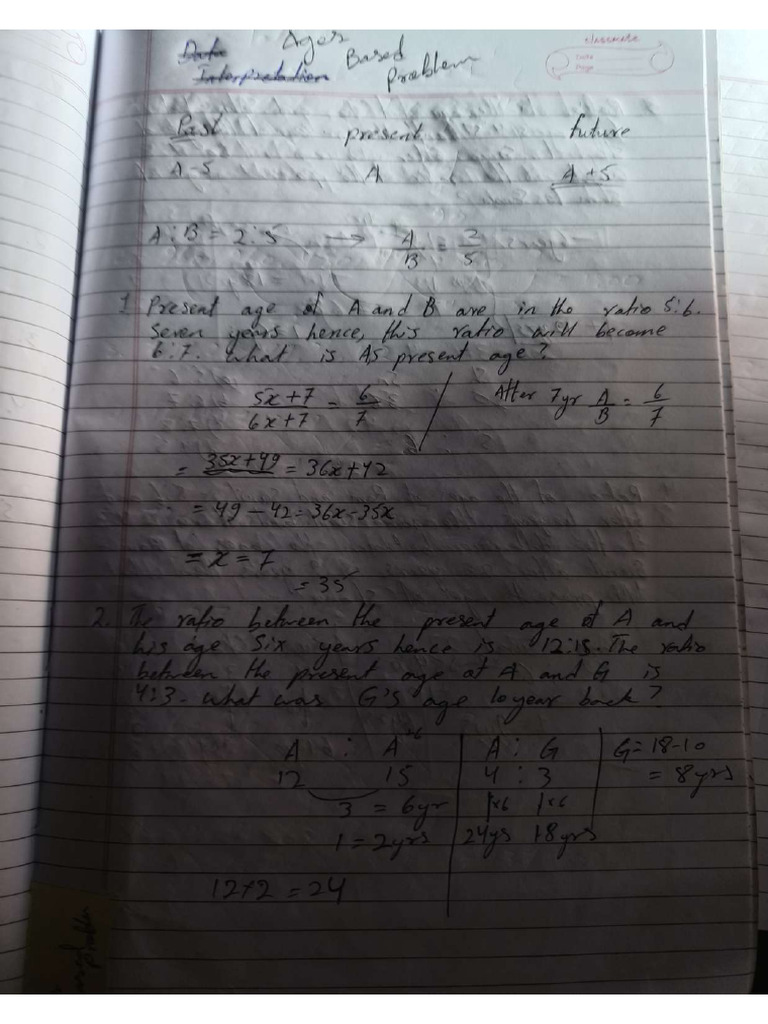 Data Ages Based
Interpretation Problem
classmate
Date
Page
Past present future
A-5 A A+5
A:B = 2:5 → A/B = 2/5
1 Present age of A and B are in the ratio 5:6.
Seven years hence, this ratio will become
6:7. What is A's present age?
5x+7/6x+7 = 6/7 After 7yr A/B = 6/7
= 35x+49 = 36x+42
= 49-42=36x-35x
= x = 7
= 35
2. The ratio between the present age of A and
his age Six years hence is 12:15. The ratio
between the present age of A and G is
4:3. What was G's age 10 year back?
A : A+6 A : G G=18-10
12 15 4 : 3 = 8yrs
3 = 6yr 1×6 1×6
1=2yrs 24ys 18yrs
12×2 = 24